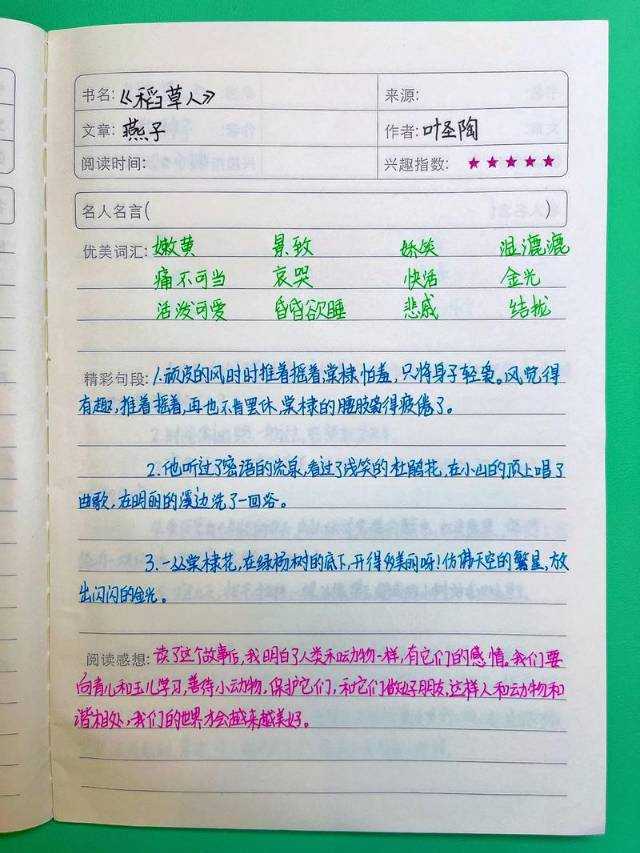 书名:《稻草人》 来源:
文章: 燕子 作者: 叶圣陶
阅读时间: 兴趣指数: ★★★★★
名人名言( )
优美词汇: 嫩黄 景致 娇笑 湿漉漉
痛不可当 哀哭 快活 金光
活泼可爱 昏昏欲睡 悲戚 结拢
精彩句段: 1.顽皮的风时时推着摇着,棠棣怕羞,只将身子轻袅。风觉得
有趣,推着摇着,再也不肯罢休,棠棣的腰肢袅得疲倦了。
2.他听过了密语的流泉,看过了浅笑的杜鹃花,在小山的顶上唱了
曲歌,在明丽的溪边洗了一回浴。
3.一丛棠棣花,在绿杨树的底下,开得多美丽呀!仿佛天空的繁星,放
出闪闪的金光。
阅读感想: 读了这个故事后,我明白了人类和动物一样,有它们的感情。我们要
向青儿和玉儿学习,善待小动物,保护它们,和它们做好朋友,这样人和动物和
谐相处,我们的世界才会越来越美好。